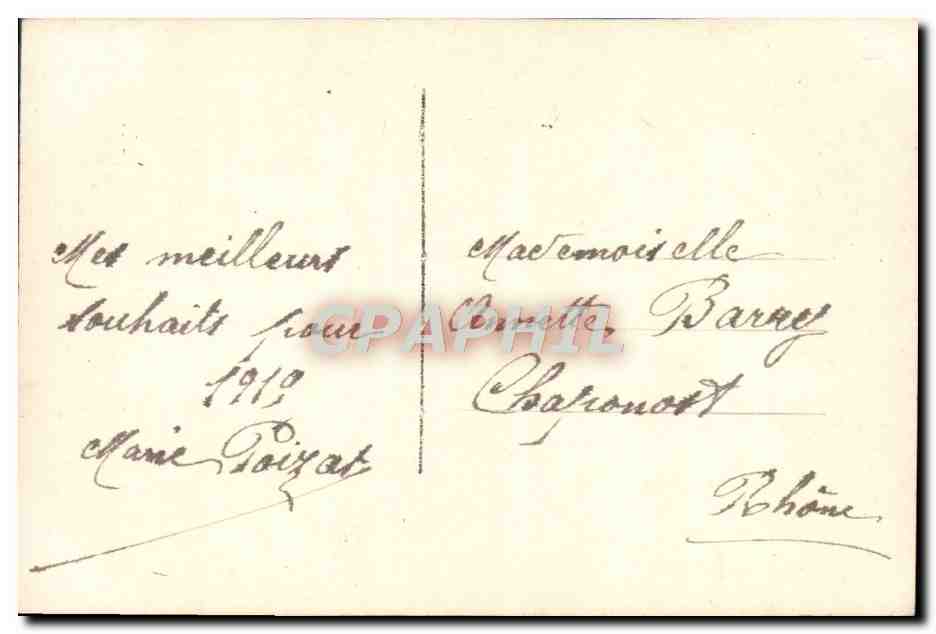 Mes meilleurs
souhaits pour
1919
Marie Poizat
Mademoiselle
Annette Barry
Chaponost
Rhône
CPAPHIL